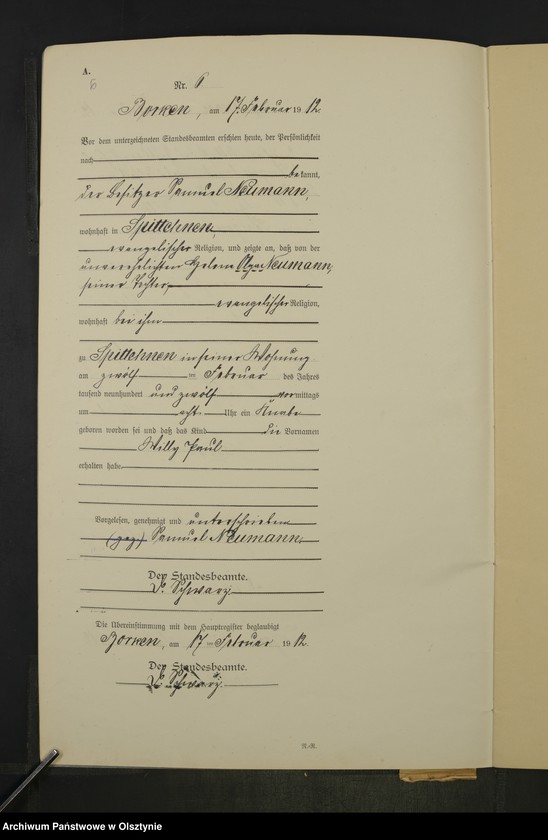 A.
6
Nr. 6
Borken, am 17. Februar 1912.
Vor dem unterzeichneten Standesbeamten erschien heute, der Persönlichkeit
nach
bekannt,
der Besitzer Samuel Neumann,
wohnhaft in Spittehnen,
evangelischer Religion, und zeigte an, daß von der
unverehelichten Helene Olga Neumann,
seiner Tochter,
evangelischer Religion,
wohnhaft bei ihm
zu Spittehnen in seiner Wohnung
am zwölf ten Februar des Jahres
tausend neunhundert und zwölf vormittags
um acht Uhr ein Knabe
geboren worden sei und daß das Kind die Vornamen
Willy Paul
erhalten habe.
Vorgelesen, genehmigt und unterschrieben
(gez.) Samuel Neumann.
Der Standesbeamte.
Schwarz
Die Übereinstimmung mit dem Hauptregister beglaubigt
Borken, am 17 ten Februar 1912.
Der Standesbeamte.
Schwarz
N.-R.
Archiwum Państwowe w Olsztynie